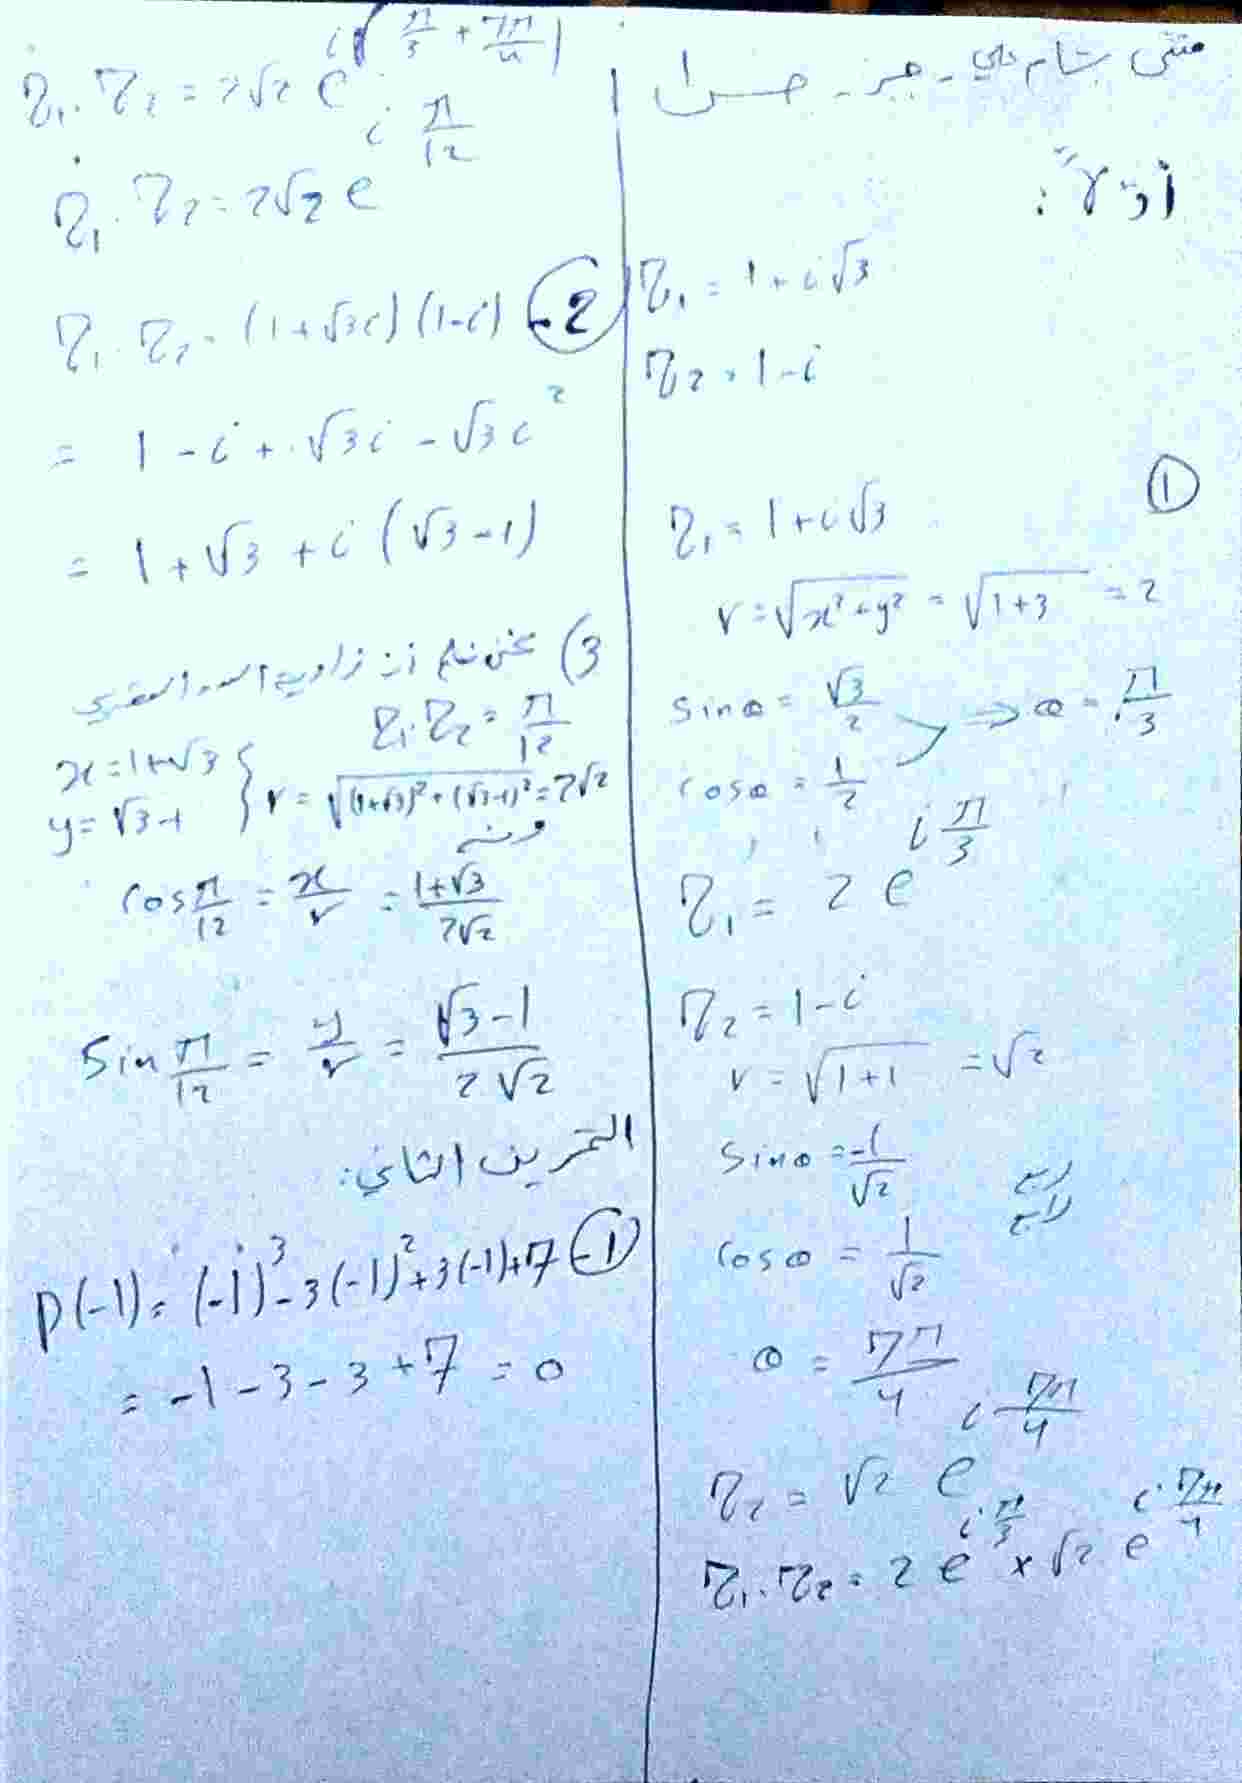 بشام علي - جبر -
أولاً:
z₁ = 1 + i√3
z₂ = 1 - i
①
z₁ = 1 + i√3
r = √(x² + y²) = √(1+3) = 2
sin θ = √3/2
cos θ = 1/2 ⇒ θ = π/3
z₁ = 2 e^(i π/3)
z₂ = 1 - i
r = √(1+1) = √2
sin θ = -1/√2
ربع
رابع
cos θ = 1/√2
θ = 7π/4
z₂ = √2 e^(i 7π/4)
z₁ . z₂ = 2 e^(i π/3) × √2 e^(i 7π/4)
z₁ . z₂ = 2√2 e^(i(π/3 + 7π/4))
z₁ . z₂ = 2√2 e^(i π/12)
2- z₁ . z₂ = (1 + √3i) (1 - i)
= 1 - i + √3i - √3i²
= 1 + √3 + i (√3 - 1)
3) نحن نعلم أن زاوية العدد العقدي
z₁ . z₂ = π/12
x = 1 + √3
y = √3 - 1 } r = √((1+√3)² + (√3-1)²) = 2√2
ومنه
cos π/12 = x/r = (1+√3)/(2√2)
sin π/12 = y/r = (√3 - 1)/(2√2)
التمرين الثاني:
1- P(-1) = (-1)³ - 3(-1)² + 3(-1) + 7
= -1 - 3 - 3 + 7 = 0